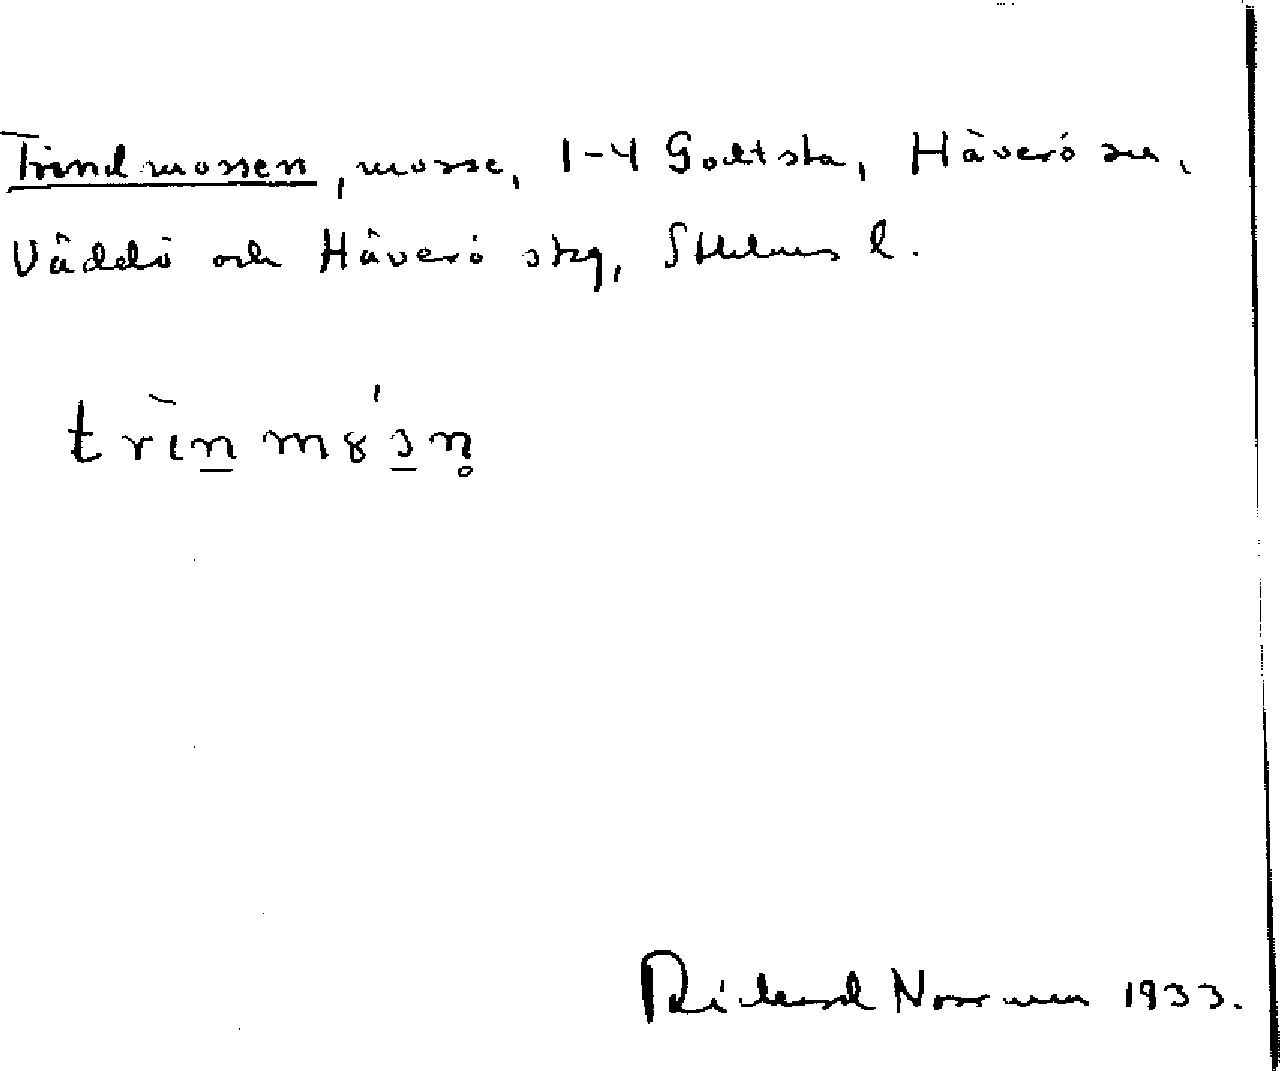 Trindmossen, mosse, 1-4 Godtsta, Häverö sn,
Väddö och Häverö skg, Sthlms l.
trìn̲ m8́s̲n̥
Rickard Norrman 1933.